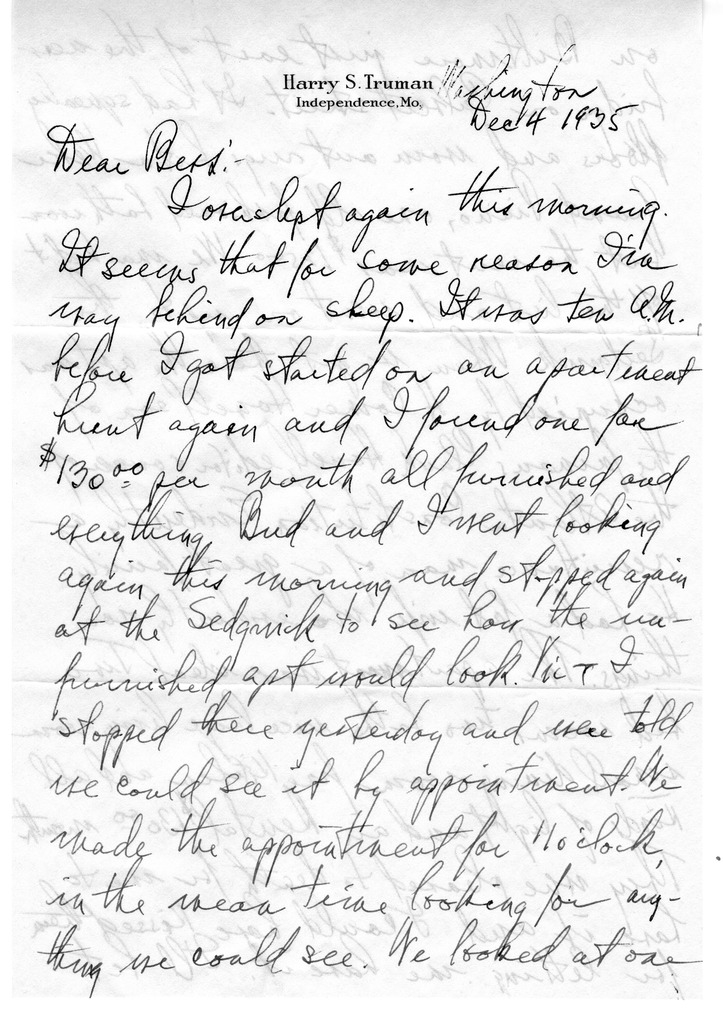 Harry S. Truman
Independence, Mo.
Washington
Dec 4 1935
Dear Bess:-
I overslept again this morning.
It seems that for some reason I'm
way behind on sleep. It was ten A.M.
before I got started on an apartment
hunt again and I found one for
$130.00 per month all furnished and
everything. Bud and I went looking
again this morning and stopped again
at the Sedgwick to see how the un-
furnished apt would look. Vic & I
stopped there yesterday and were told
we could see it by appointment. We
made the appointment for 11 o'clock,
in the mean time looking for any-
thing we could see. We looked at one